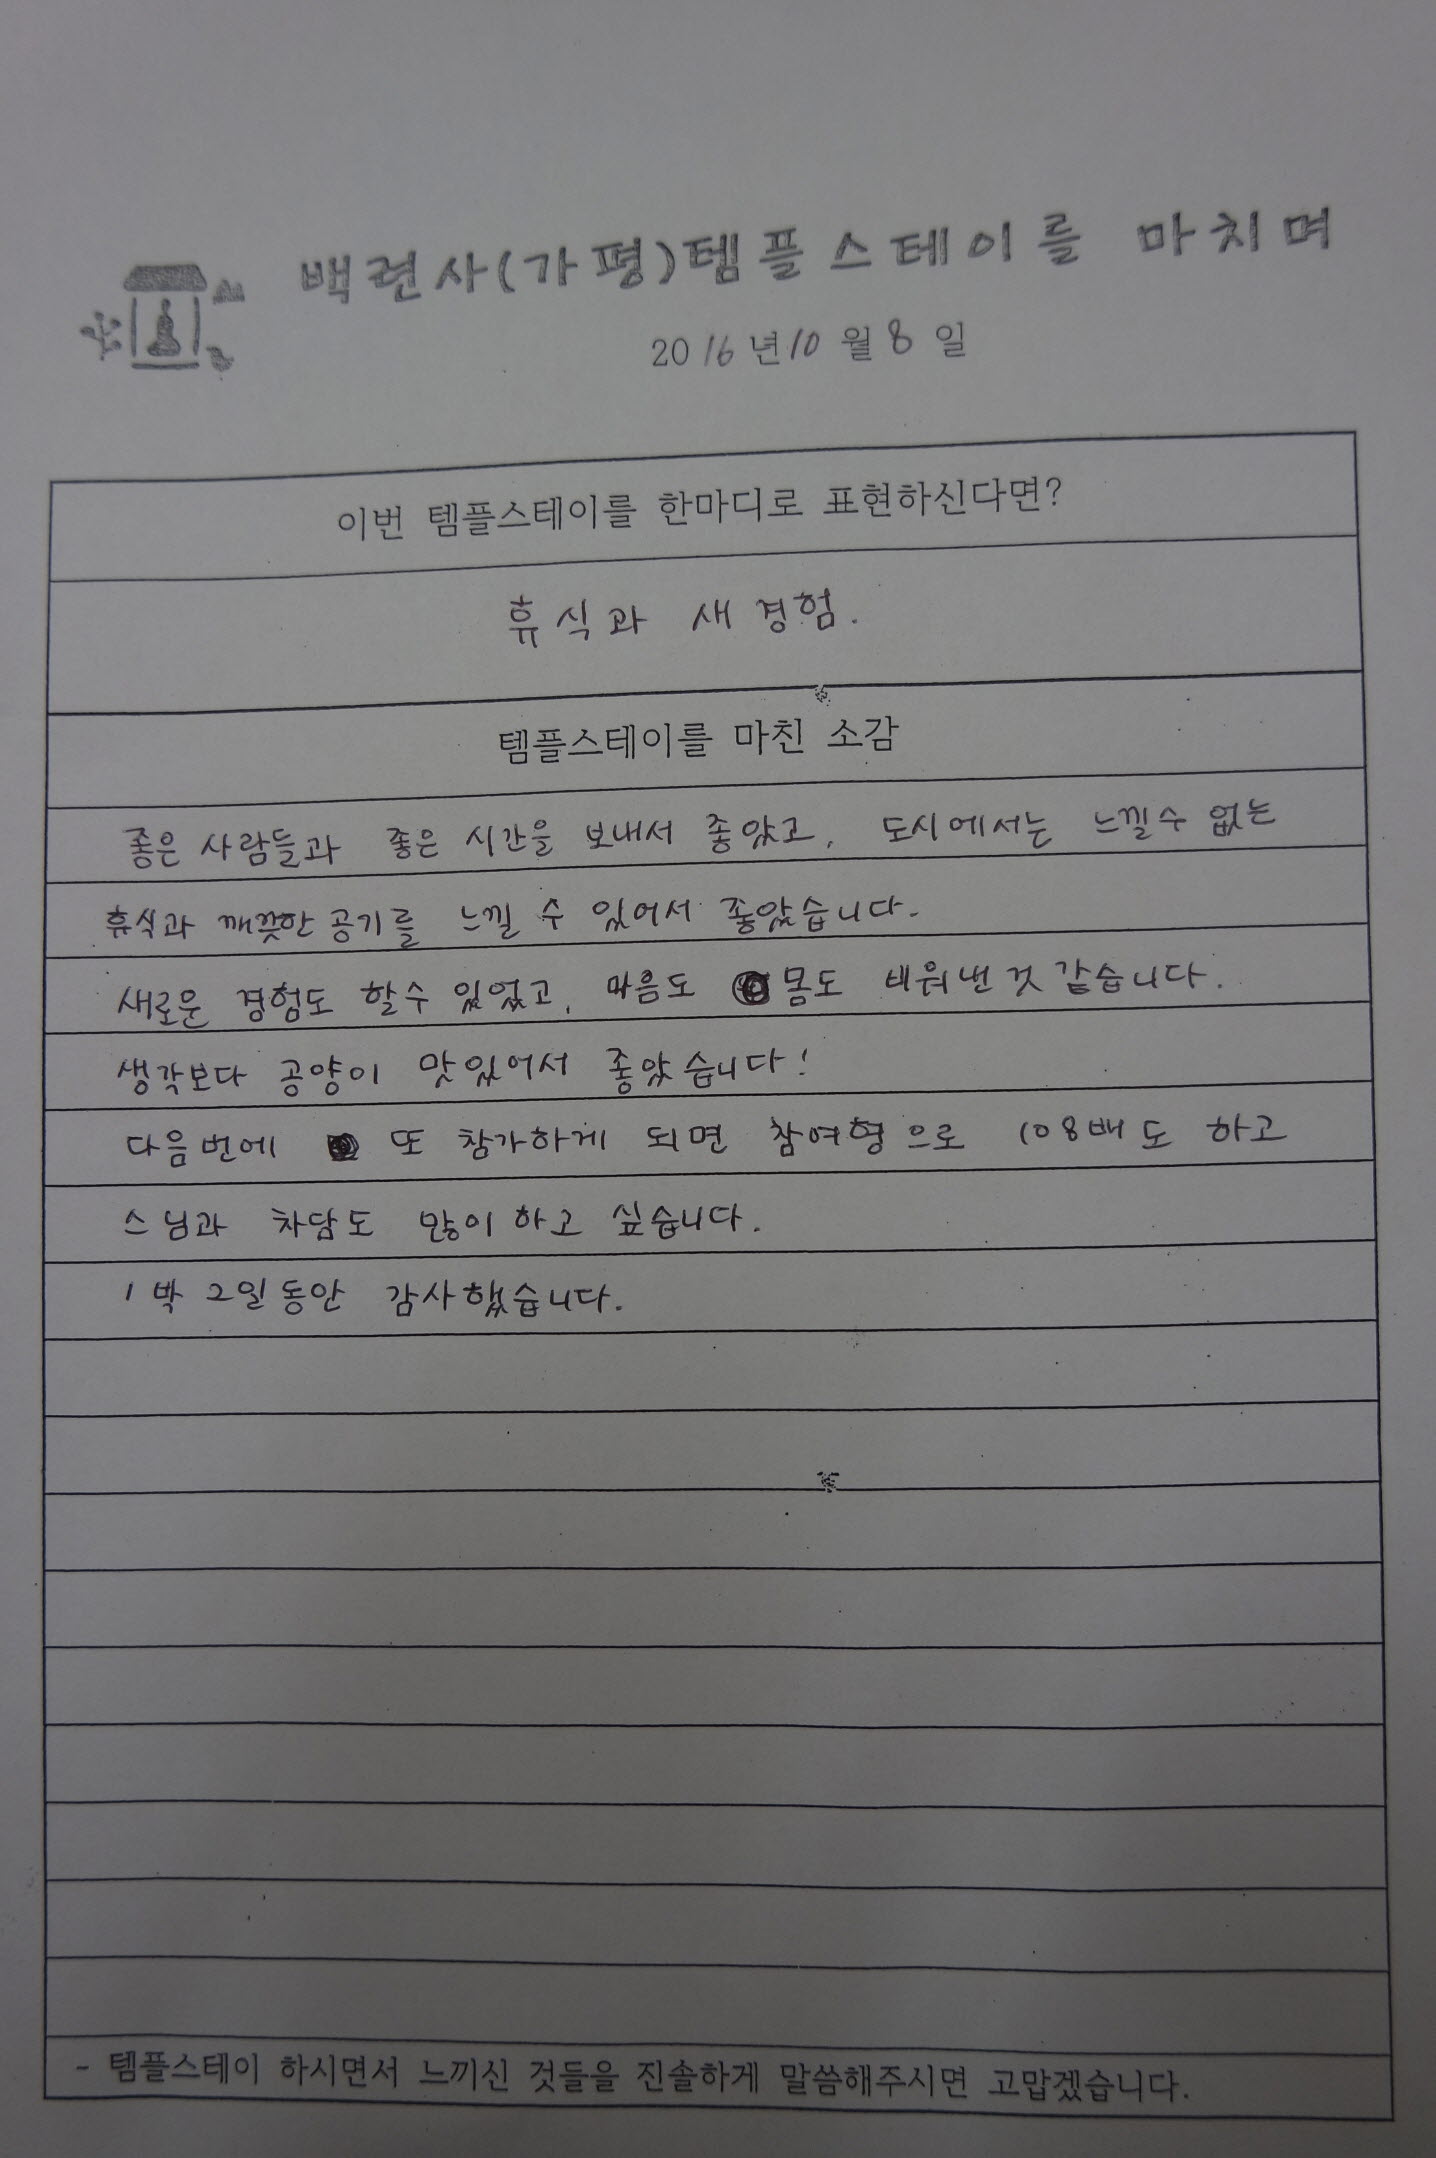 백련사(가평)템플스테이를 마치며
2016년10월8일
이번 템플스테이를 한마디로 표현하신다면?
휴식과 새경험.
템플스테이를 마친 소감
좋은 사람들과 좋은 시간을 보내서 좋았고, 도시에서는 느낄수 없는
휴식과 깨끗한 공기를 느낄 수 있어서 좋았습니다.
새로운 경험도 할수 있었고, 마음도 몸도 비워낸것 같습니다.
생각보다 공양이 맛있어서 좋았습니다!
다음번에 또 참가하게 되면 참여형으로 108배도 하고
스님과 차담도 많이하고 싶습니다.
1박 2일동안 감사했습니다.
- 템플스테이 하시면서 느끼신 것들을 진솔하게 말씀해주시면 고맙겠습니다.